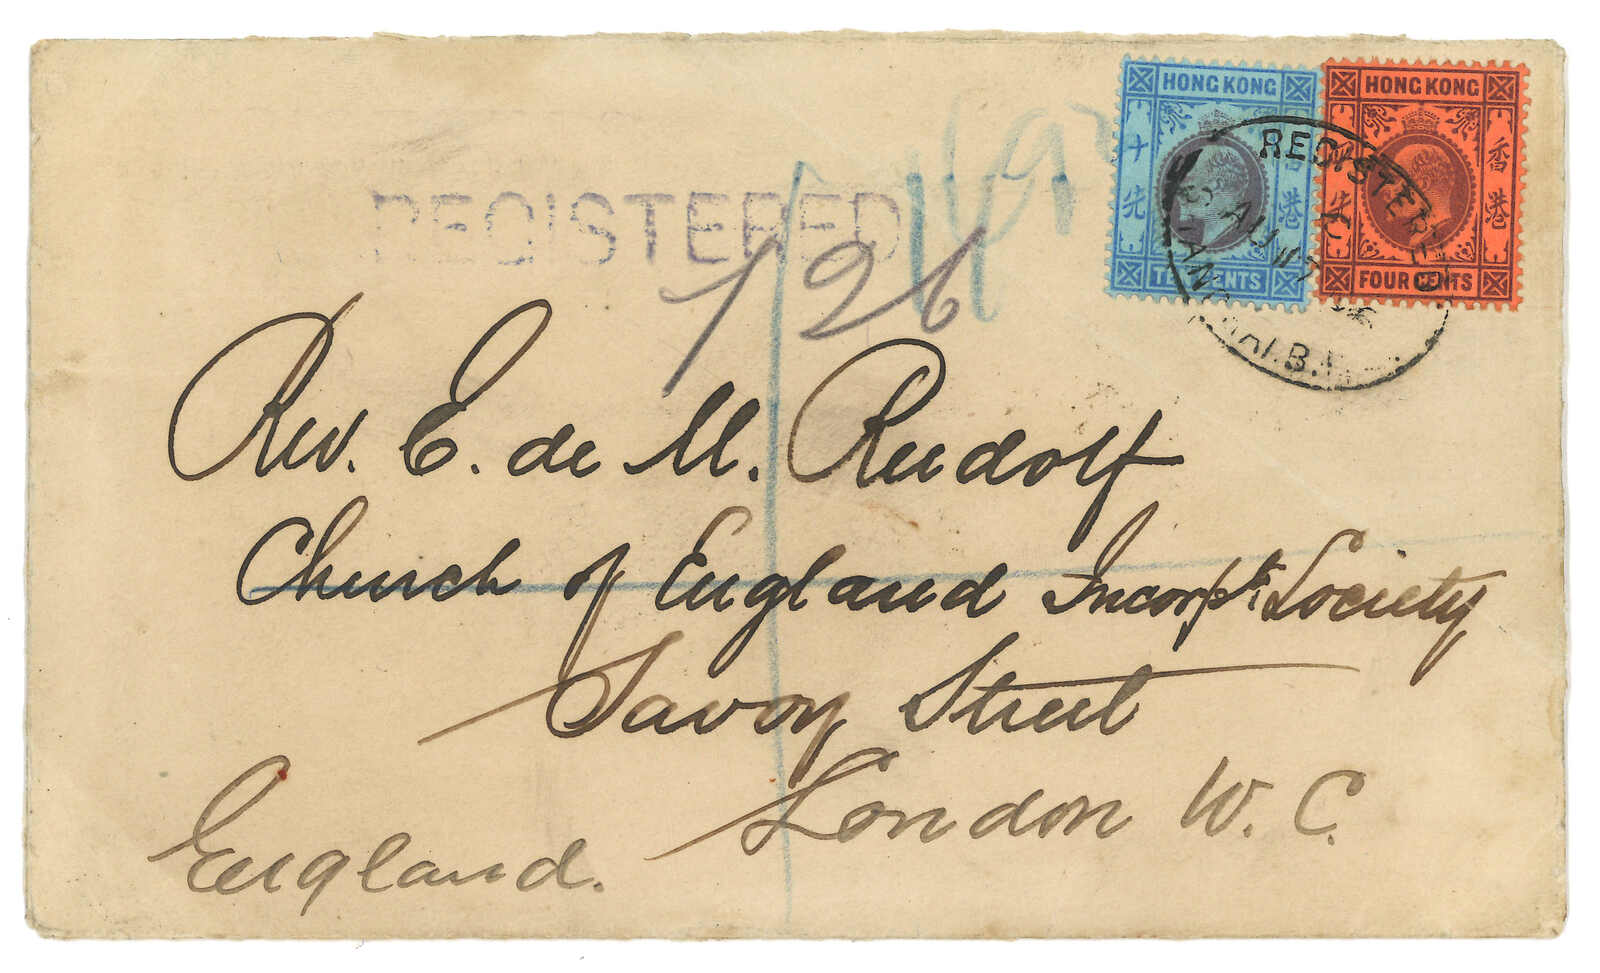 HONG KONG
十
先
香
港
TEN CENTS
HONG KONG
先
香
港
FOUR CENTS
REGISTERED
REGISTERED
126
Rev. E. de M. Rudolf
Church of England Incorptd Society
Savoy Street
London W. C.
England.